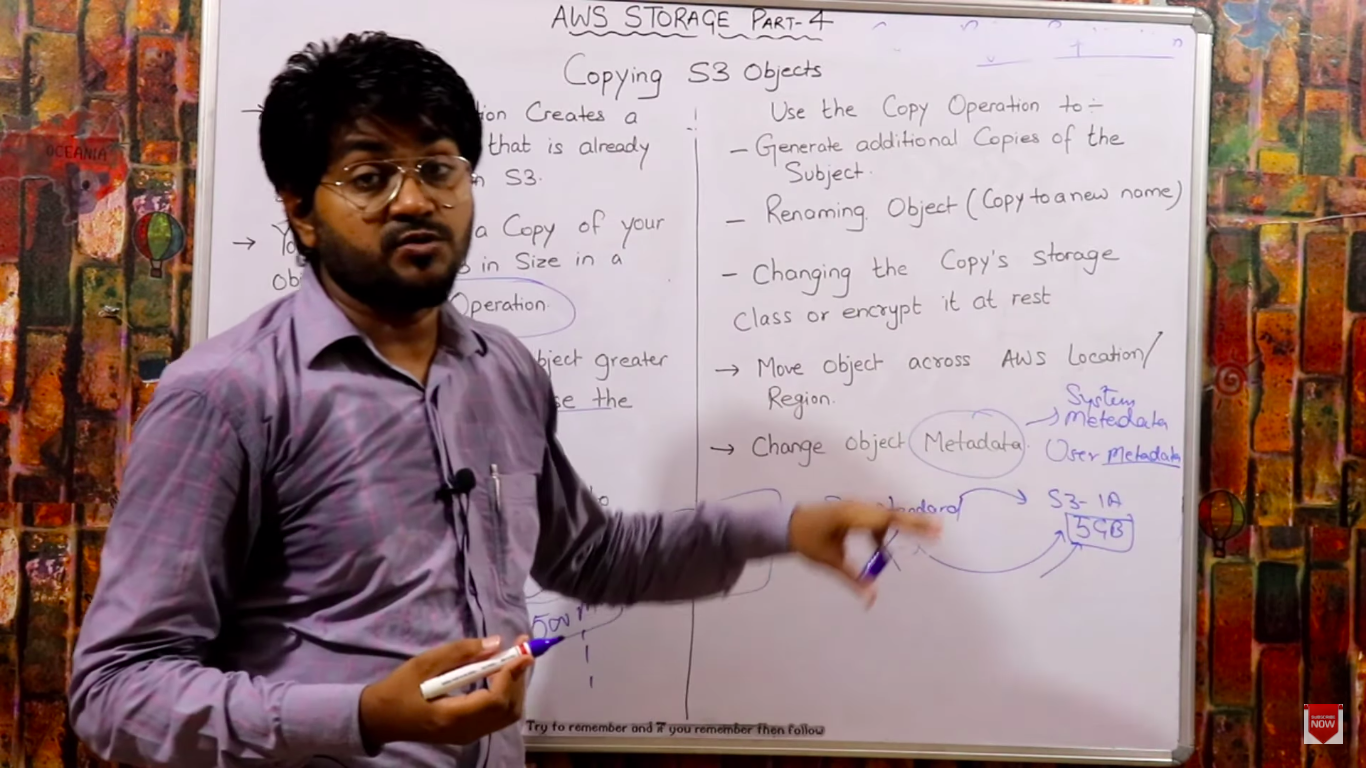 AWS STORAGE PART-4
Copying S3 Objects
ion Creates a
that is already
n S3.
→ a Copy of your
in Size in a
Operation
bject greater
se the
to
Use the Copy Operation to ÷
– Generate additional Copies of the
Subject.
– Renaming Object (Copy to a new name)
– Changing the Copy's storage
Class or encrypt it at rest
→ Move object across AWS Location/
Region.
→ Change object Metadata.
System
Metedata
User Metadata
standard
S3-IA
5GB
OCEANIA
Try to remember and if you remember then follow
SUBSCRIBE
NOW